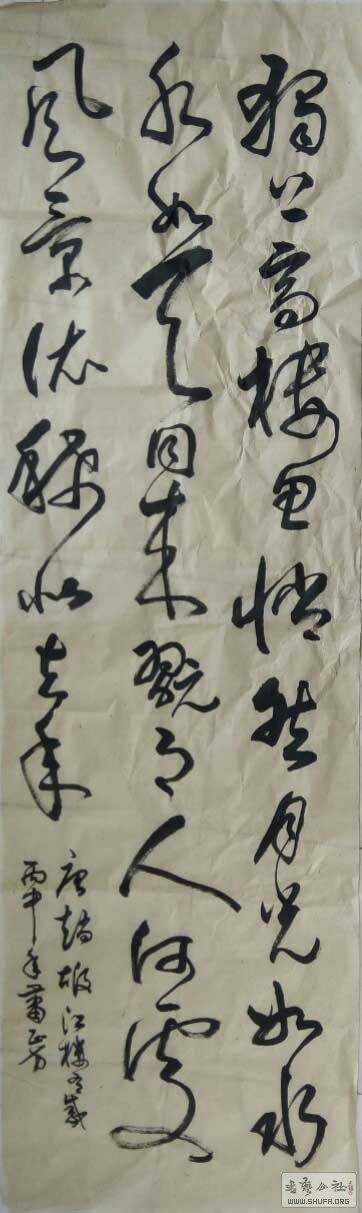 獨上高樓思悄然月光如水
水如天同來翫月人何處
風景依稀似去年
唐趙嘏江樓有感
丙申年蕭
書藝公社
WWW.SHUFA.ORG